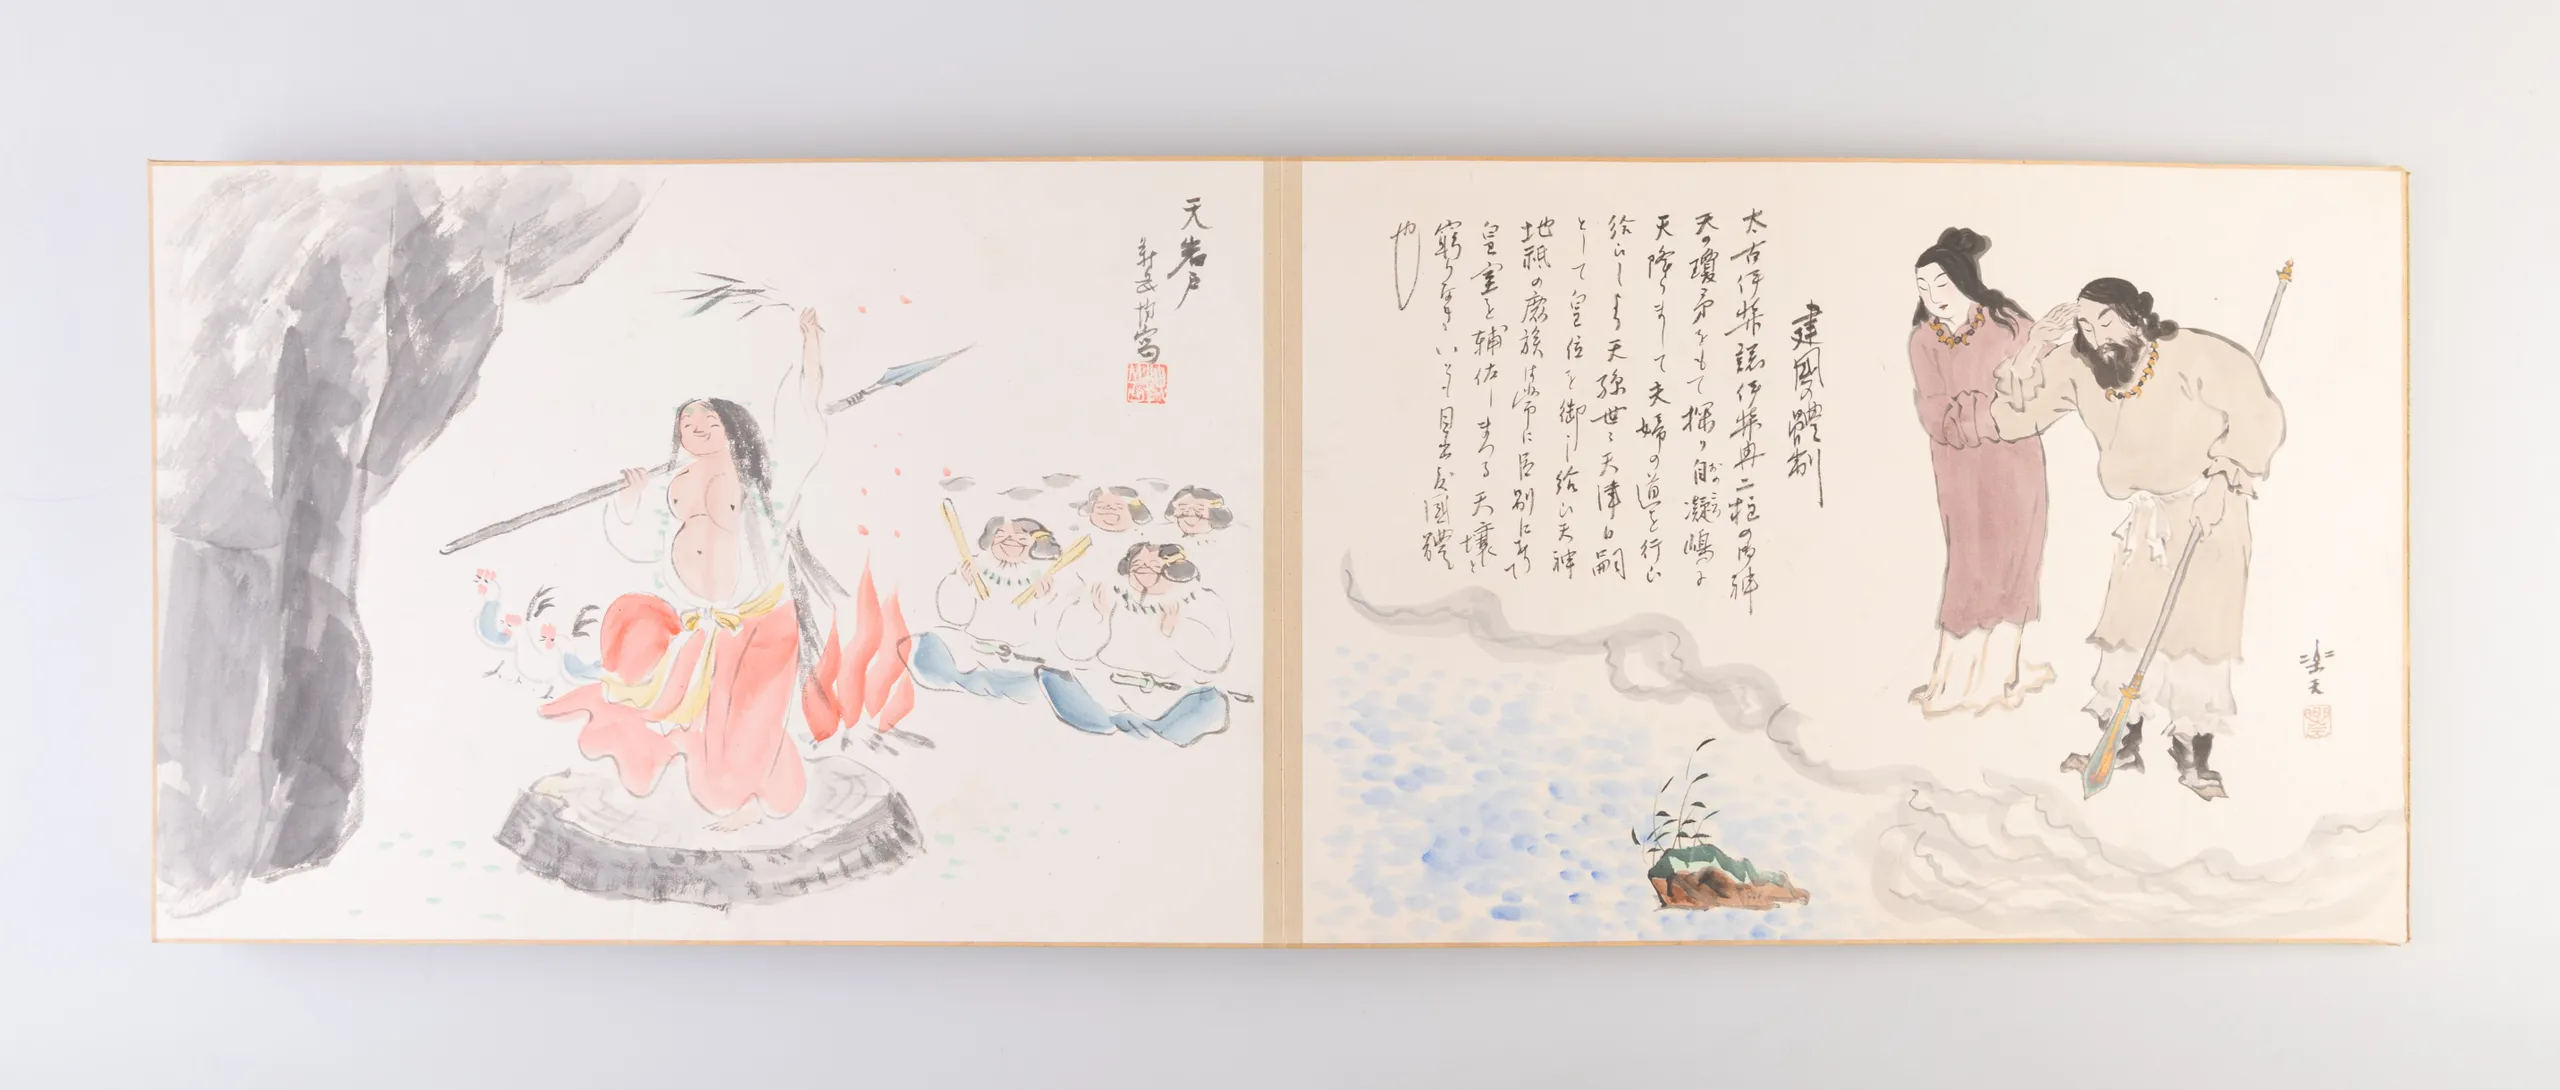 建國の體制
太古伊弉諾伊弉冉二柱の御神
天の瓊矛をもて探り自凝嶋に
天降りまして夫婦の道を行ひ
給ひしより天孫世々天津日嗣
として皇位を御し給ひ天神
地祇の裔族は常に臣列にありて
皇室を輔佐しまつる天壤と
窮りなきいとも目出度國體
也
楽天
天岩戸